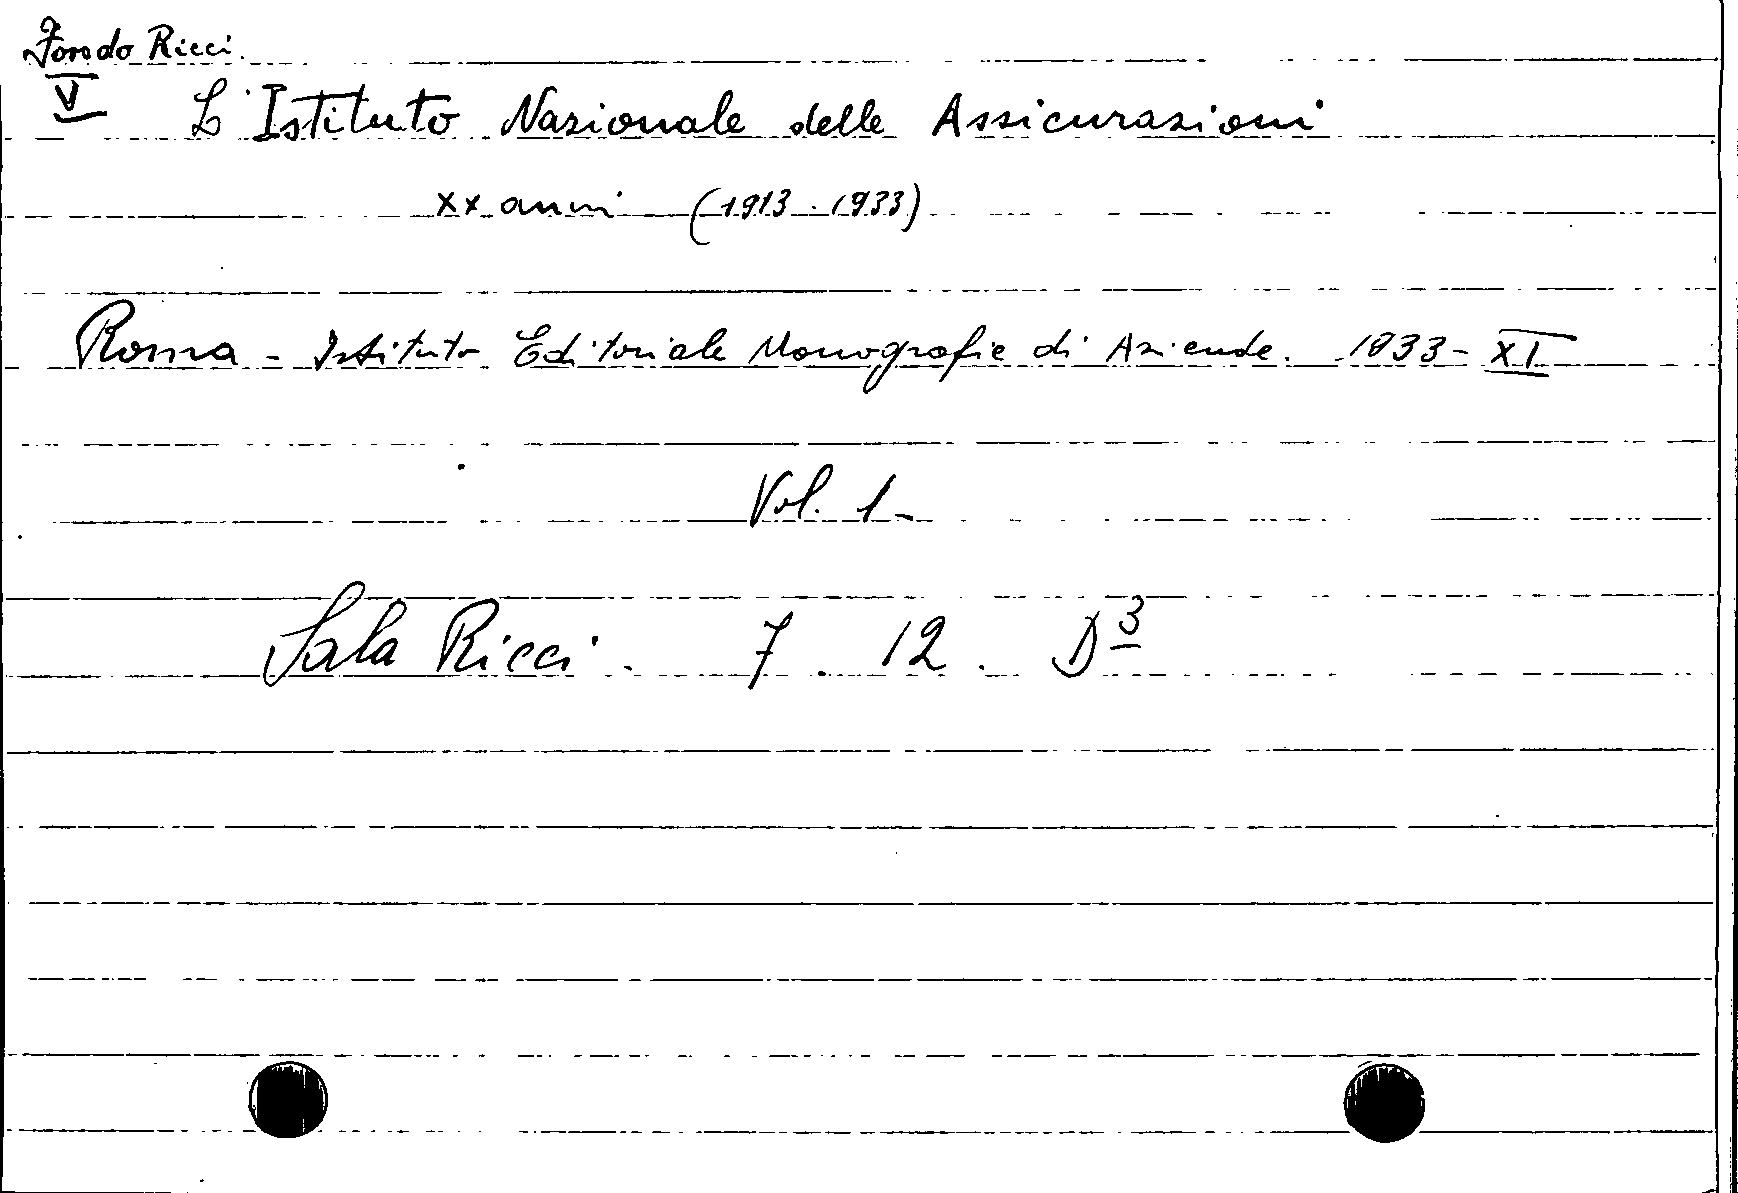 Fondo Ricci.
V L'Istituto Nazionale delle Assicurazioni
XX anni (1913-1933)
Roma - Istituto Editoriale Monografie di Aziende. 1933-XI
Vol. 1-
Sala Ricci. 7. 12. D3